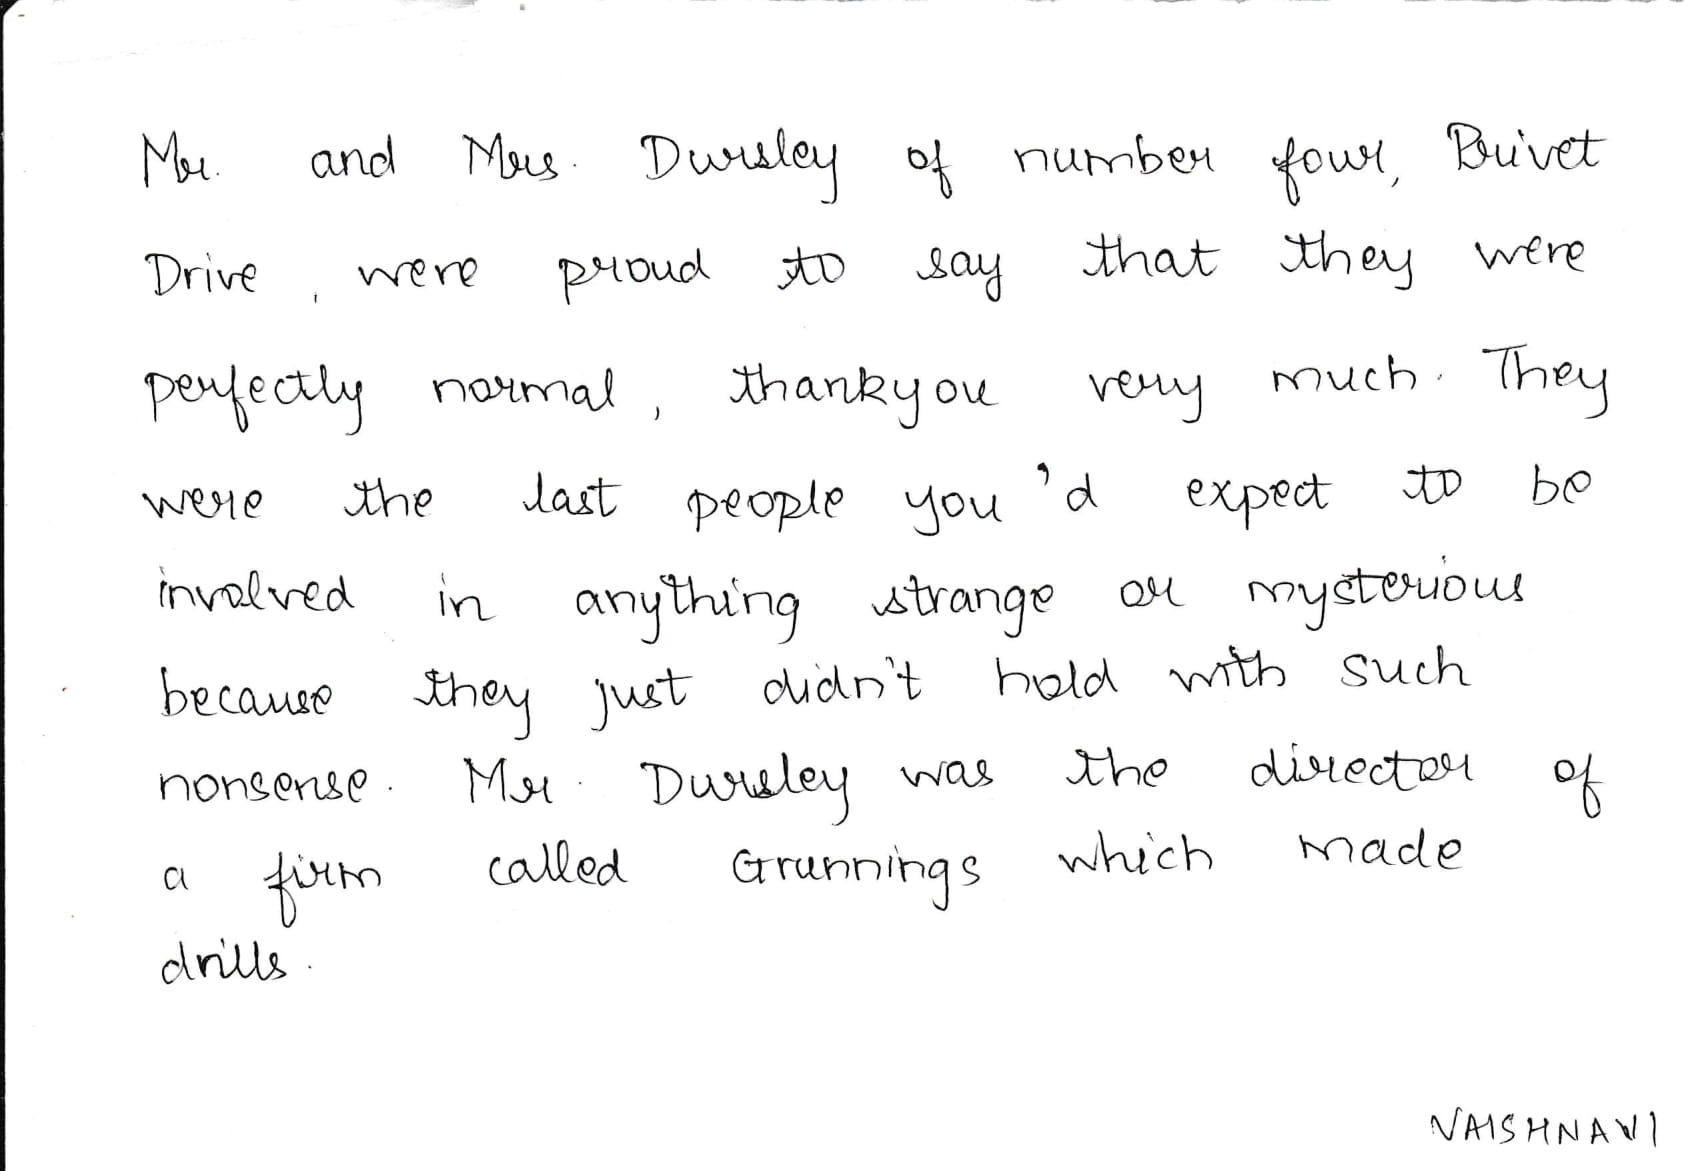 Mr. and Mrs. Dursley of number four, Privet
Drive, were proud to say that they were
perfectly normal, thankyou very much. They
were the last people you'd expect to be
involved in anything strange or mysterious
because they just didn't hold with such
nonsense. Mr. Dursley was the director of
a firm called Grunnings which made
drills.
VAISHNAVI